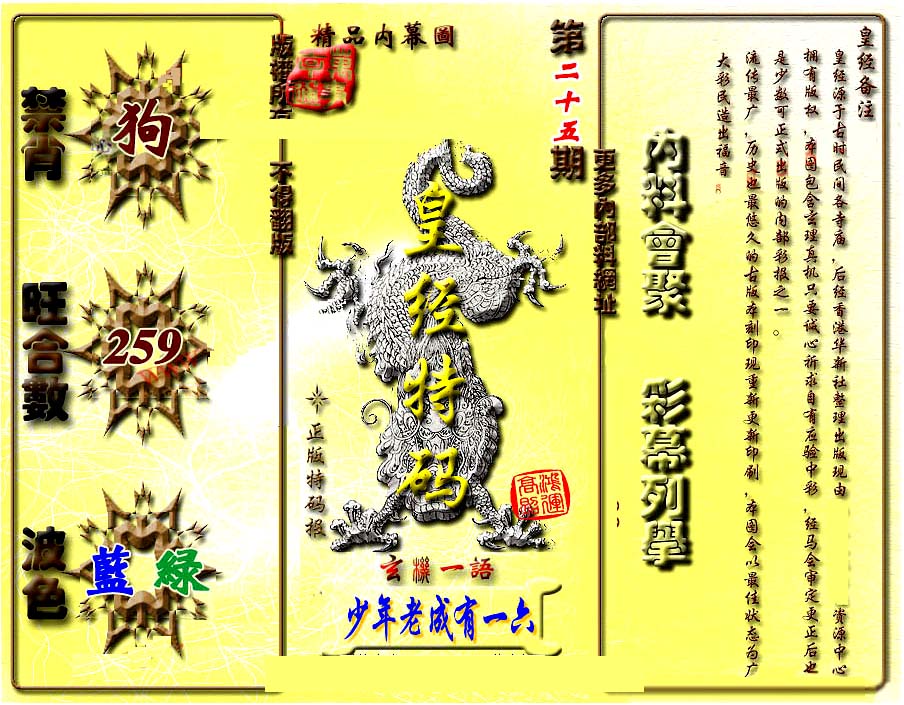 禁肖
狗
旺合數
259
波色
藍 綠
精品内幕圖
版權所有
不得翻版
第二十五期
更多内部料網址
皇经特码
正版特码报
鴻運
玄機一語
少年老成有一六
内料會聚
彩幕列舉
皇经备注
皇经源于古时民间各寺庙，后经香港华新社整理出版现由 资源中心
拥有版权，本图包含玄理真机只要诚心祈求自有应验中彩，经马会审定更正后也
是少数可正式出版的内部彩报之一。
流传最广，历史也最悠久的古版本刻印现重新更新印刷，本图会以最佳状态为广
大彩民造出福音